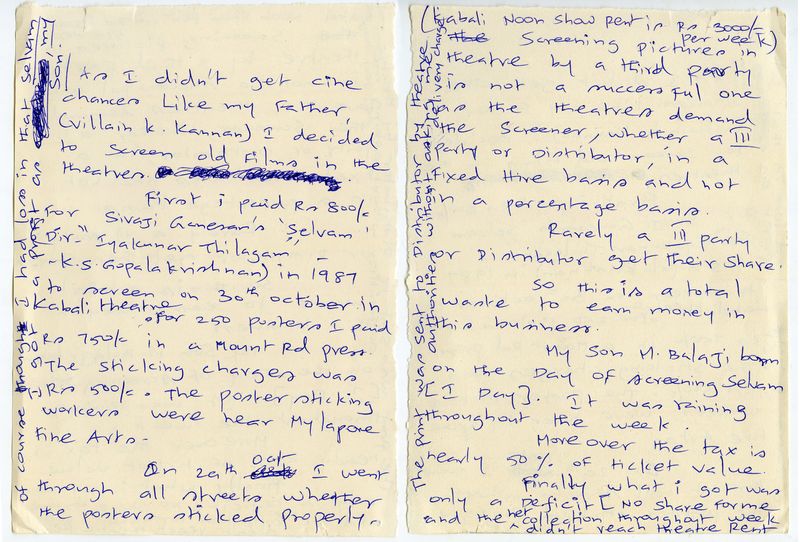 As I didn't get cine
chances Like my Father,
(Villain K. Kannan) I decided
to screen old Films in the
theatres.
First i paid Rs 800/-
For Sivaji Ganesan's 'Selvam'
[Dir-" Iyakunar Thilagam" -
- K.S. Gopalakrishnan) in 1987
to screen on 30th october in
Kabali theatre
For 250 posters I paid
Rs 750/- in a Mount Rd press.
The sticking charges was
Rs 500/-. The poster sticking
workers were near Mylapore
Fine Arts-
On 29th Oct I went
through all streets whether
the posters sticked properly.
of course I had loss in that Selvam
I got a profit as my
Son.
(Kabali Noon Show Rent is Rs 3000/-
Per week)
Screening pictures in
theatre by a third party
is not a successful one
as the theatres demand
the Screener, whether a III
party or Distributor, in a
Fixed Hire basis and not
in a percentage basis.
Rarely a III party
or Distributor get their Share.
So this is a total
waste to earn money in
this business.
My Son M. Balaji born
on the Day of screening Selvam
[I Day]. It was raining
throughout the week.
More over the tax is
nearly 50% of ticket value.
Finally what i got was
only a Deficit [No Share for me
and the net collection throughout week
didn't reach theatre Rent
The print was sent to Distributor by theatre
authorities without asking me
delivery charges